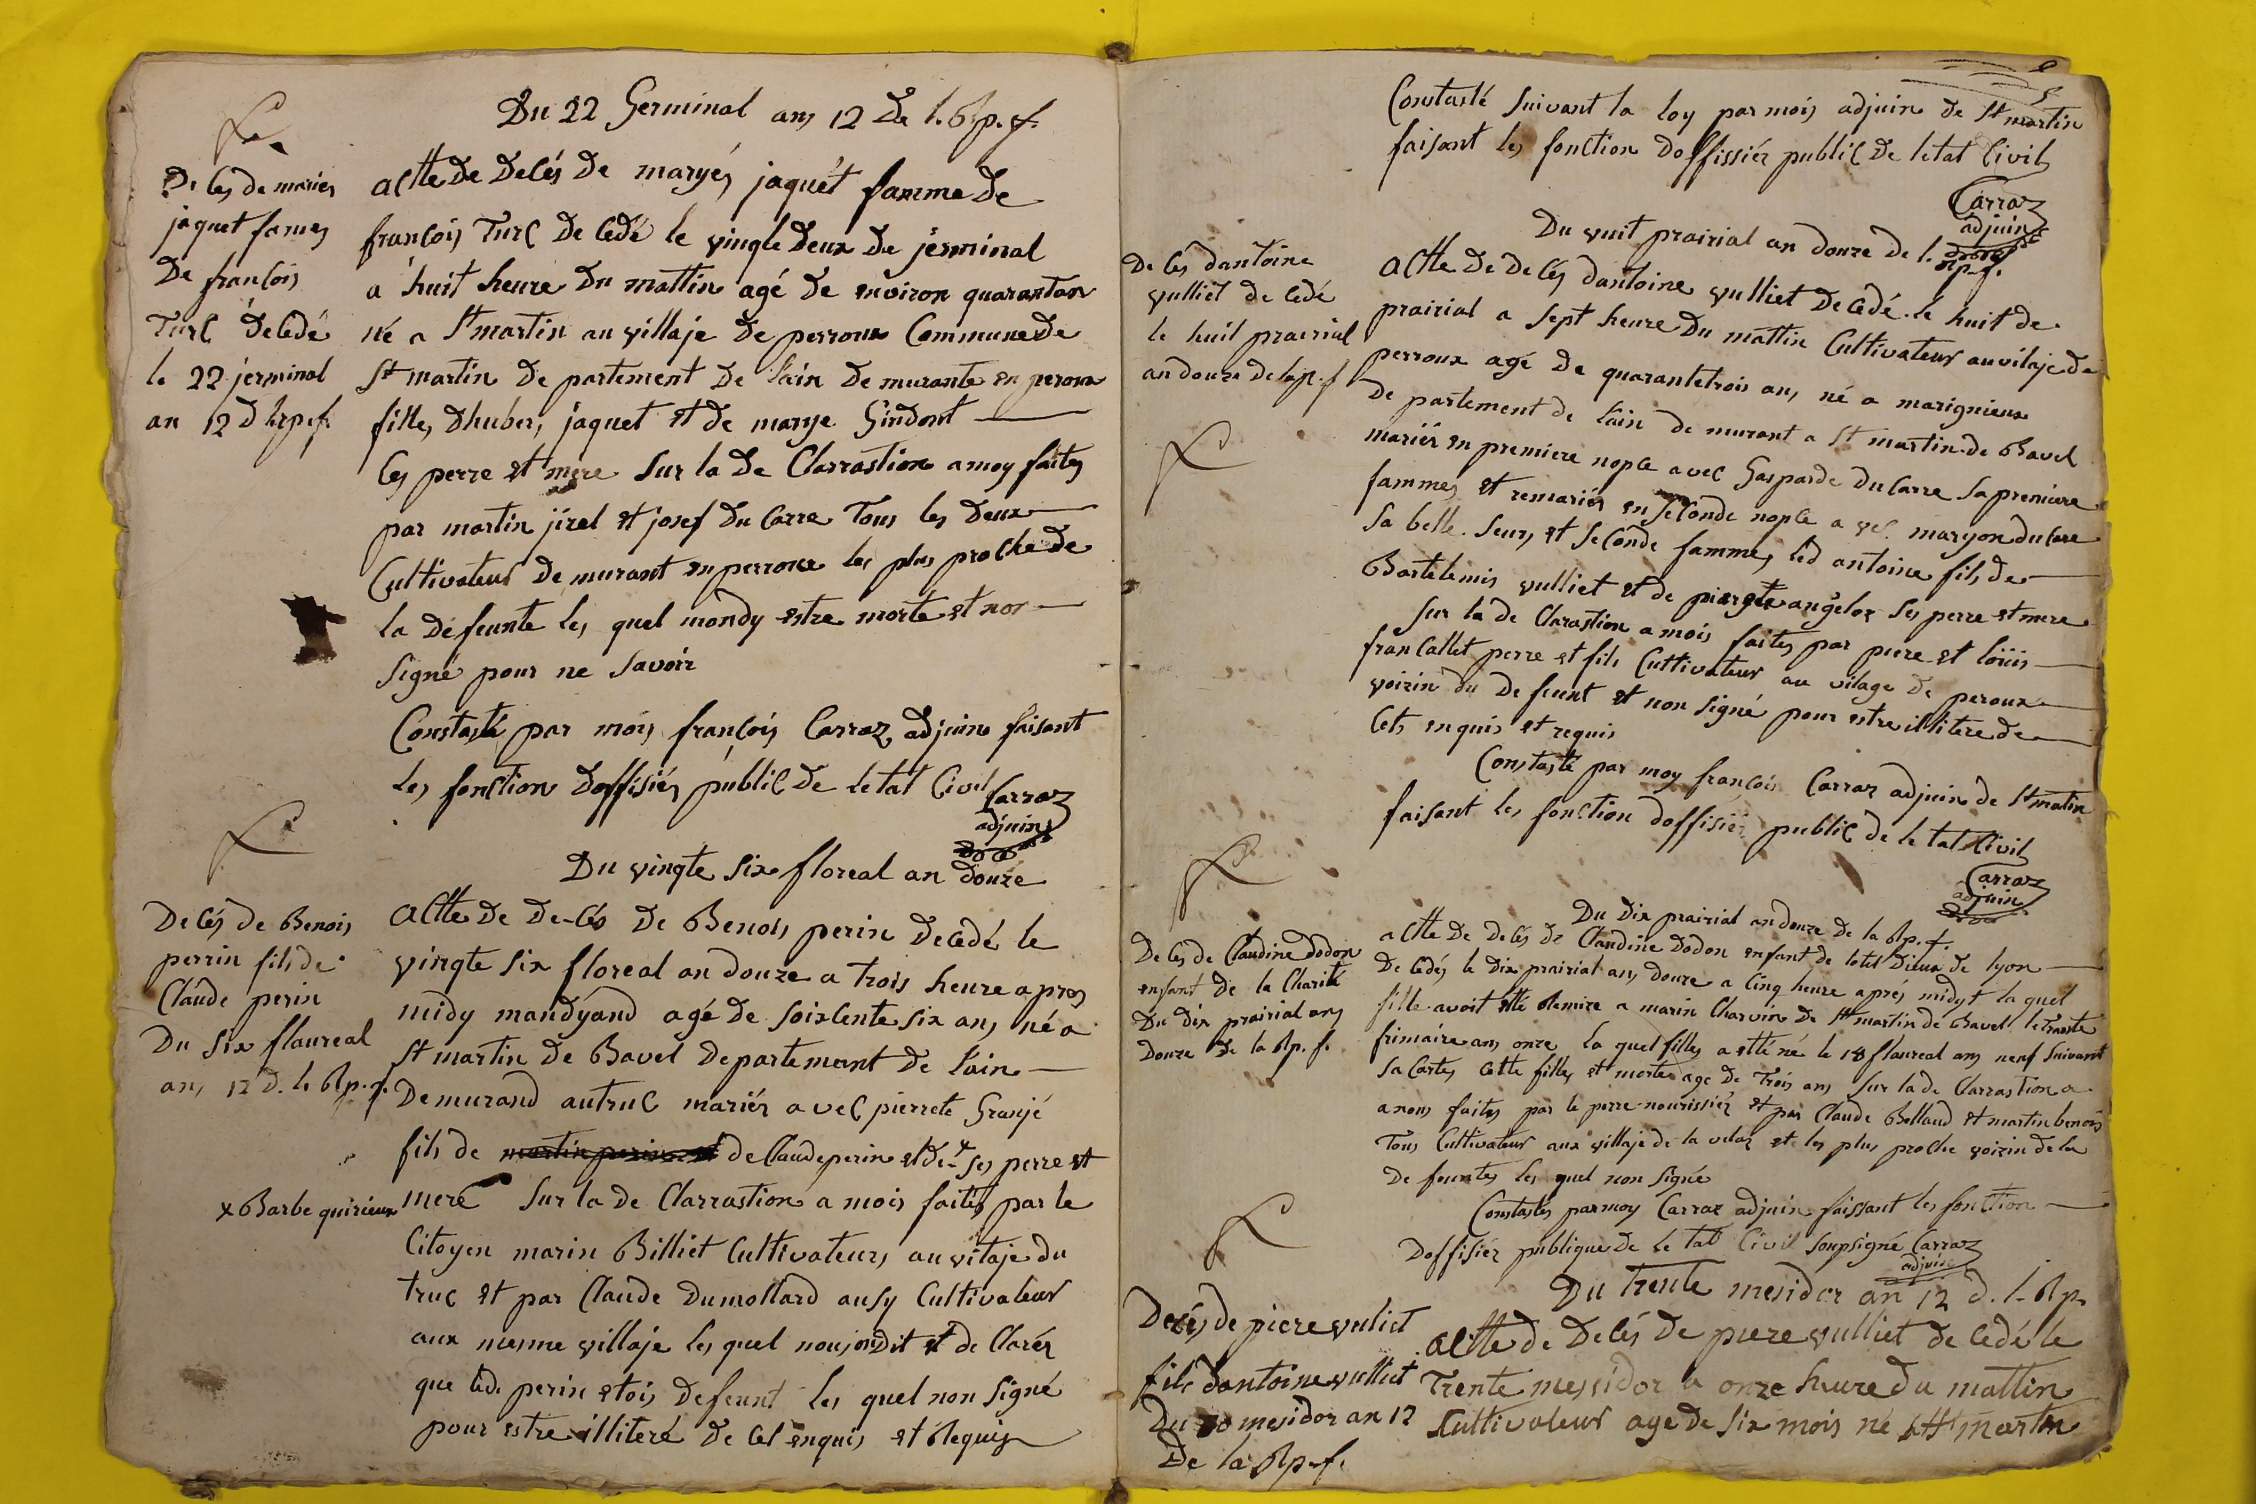 Du 22 Germinal ans 12 De l. Rp. f.
De ces de maries
jaquet fames
De francois
Turc decedé
le 22 jerminal
an 12 D lrp.f.
actte De Decés De maryes jaquét famme De
françois Turc De Cedé le vingte Deux De jerminal
a huit heure Du mattin agé De environ quarantan
né a St martin au villaje De perroux Commune De
St martin De partement De lain De murante en peroux
filles Dhuber jaquet et De marye Gindont
Ces perre et mere Sur la De Clarrastion a moy faites
par martin jirel et josef Du Carre Tous les Deux
Cultivateur De murant en perroux les plus proche De
la Défeunte les quel mondy estre morte et non
Signé pour ne Savoir
Constasté par mois françois Carraz adjuin faisant
les fonction Doffisiér public De letat Civil
Carraz
adjuin
Du vingte Six floreal an Douze
De cés de Benois
perrin fils de
Claude perin
Du Six flaureal
ans 12 D. le Rp. f.
Actte De De-cés De Benois perin Decedé le
vingte Six floreal an Douze a trois heure apres
midy mandyand agé De Soixcente Six ans né a
St martin De Bavel Departement De lain
Demurand autruc mariér avec pierrete Granjé
fils de martin perin et de Claude perin et de x Ses perre et
x Barbe quirieux
mere Sur la De Clarrastion a mois faites par le
Citoyen marin Billiet Cultivateurs au vilaje du
truc et par Claude Dumollard ausy Cultivateur
aux mesme villaje les quel nous on Dit et De Clarér
que led. perin etois Defeunt les quel non Signé
pour estre illiteré De Cel enquis et Requis
Constasté Suivant la loy par mois adjuin de St martin
faisant les fonction Doffissiér public De letat Civil
Carraz
adjuin
Du vuit prairial an douze De l. Rp. f.
De ces dantoine
vulliet de cedé
le huit prairial
an douze de la rp. f
Actte De De cés dantoine vulliet De Cedé le huit de
prairial a Sept heure Du mattin Cultivateur au vilaje De
perroux agé De quarantetrois ans né a marignieux
De partement de lain De murant a St martin de Bavel
mariér en premiere nopce avec Gasparde Ducarre Sa premiere
fammes et remariér en Seconde nopce a vec maryon du Carre
Sa belle Seurs et Seconde fammes led antoine fils de
Bartelemis vulliet et de angelos Ses perre et mere
Sur la De Clarastion a mois faites par piere et loüis
francallet perre et fils Cultivateur au vilage De peroux
voizin du De feunt et non Signé pour estre illitere De
Cets enquis et requis
Constasté par moy françois Carraz adjuin de St matin
faisant les fonction doffisiér public De le tat Civil
Carraz
adjuin
Du Dix prairial an douze De la Rp. f.
De ces de Claudine Dodon
enfant De la Charité
Du Dix prairial ans
Douze De la Rp. f.
actte De Decés De Claudine Dodon enfant de lotel Dieux De lyon
De Cedés le Dix prairial ans Douze a Cinq heure aprés midyt la quel
fille avoit etté Remize a marin Charvin De St martin de Bavel le Trante
frimaire ans onze la quel filles a etté né le 18 flaureal ans neuf Suivant
Sa Cartes Cette filles et morte age De Trois ans Sur la de Clarrastion a
a nous faites par le perre nourissiér et par Claude Bolland et martin benois
Tous Cultivateur aux villaje de la velaz et les plus proche voizin de la
De feuntes les quel non Signé
Constastés par moy Carraz adjuin faissant les fonction
Doffisiér publique de le tat Civil Soupsigné Carraz
adjuin
Du Trente mesidor an 12 d. l. Rp.
Decés de piere vuliet
fils dantoine vulliet
Du 30 mesidor an 12
De la Rp. f.
actte de Decés De piere vulliet De Cedé le
Trente messidor a onze heure du mattin
Cultivateur age de Six mois né a St martin